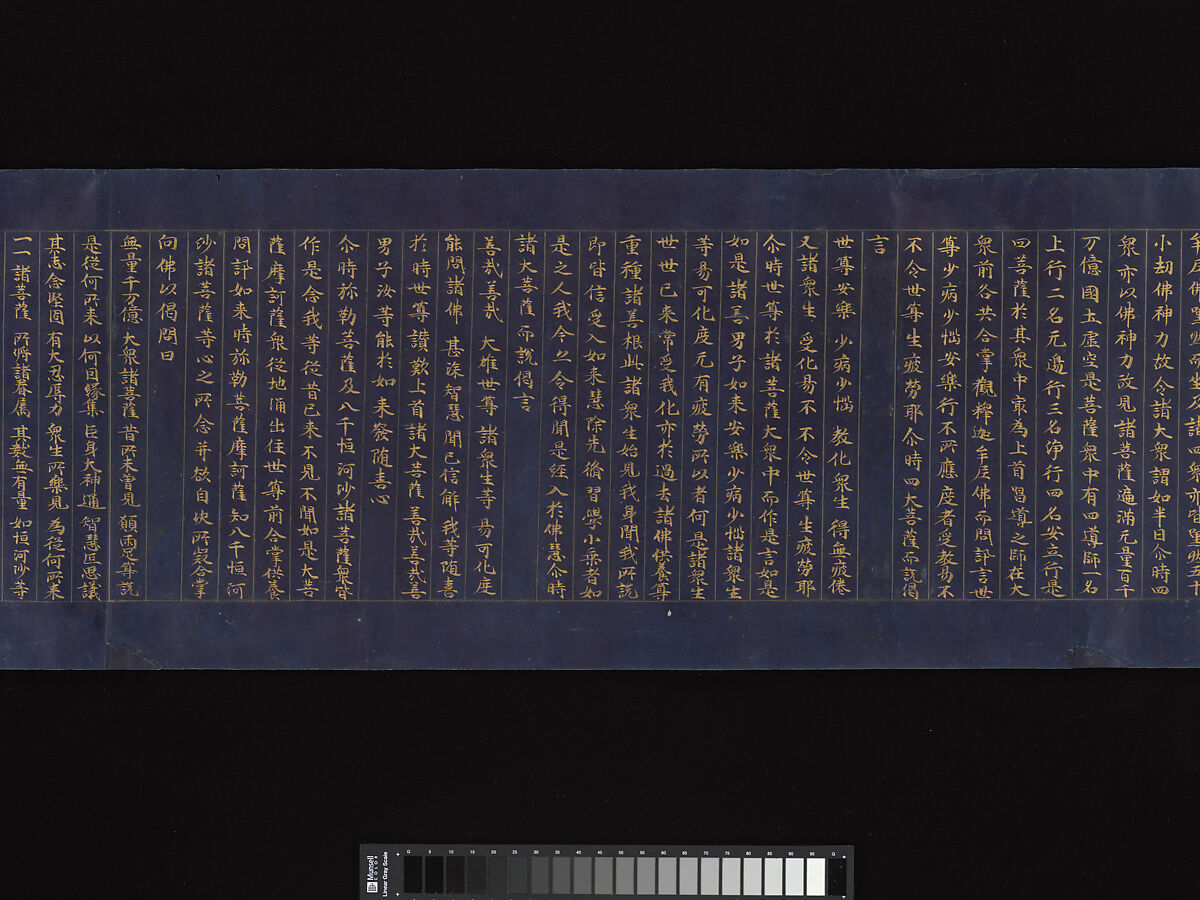 尼佛默然而坐及諸四衆亦皆默然五十
小劫佛神力故令諸大衆謂如半日尒時四
衆亦以佛神力故見諸菩薩遍滿无量百千
万億國土虛空是菩薩衆中有四導師一名
上行二名无邊行三名淨行四名安立行是
四菩薩於其衆中冣為上首唱導之師在大
衆前各共合掌觀釋迦牟尼佛而問訊言世
尊少病少惱安樂行不所應度者受教易不
不令世尊生疲勞耶尒時四大菩薩而說偈
言
世尊安樂 少病少惱 教化衆生 得無疲倦
又諸衆生 受化易不 不令世尊 生疲勞耶
尒時世尊於諸菩薩大衆中而作是言如是
如是諸善男子如来安樂少病少惱諸衆生
等易可化度无有疲勞所以者何是諸衆生
世世已来常受我化亦於過去諸佛供養尊
重種諸善根此諸衆生始見我身聞我所說
即皆信受入如来慧除先脩習學小乘者如
是之人我今亦令得聞是經入於佛慧尒時
諸大菩薩而說偈言
善哉善哉 大雄世尊 諸衆生等 易可化度
能問諸佛 甚深智慧 聞已信解 我等随喜
於時世尊讃歎上首諸大菩薩善哉善哉善
男子汝等能於如来發随喜心
尒時弥勒菩薩及八千恒河沙諸菩薩衆皆
作是念我等從昔已来不見不聞如是大菩
薩摩訶薩衆從地涌出住世尊前合掌供養
問訊如来時弥勒菩薩摩訶薩知八千恒河
沙諸菩薩等心之所念并欲自決所疑合掌
向佛以偈問曰
無量千万億 大衆諸菩薩 昔所未曾見 願兩足尊說
是從何所来 以何因緣集 巨身大神通 智慧叵思議
其志念堅固 有大忍辱力 衆生所樂見 為從何所来
一一諸菩薩 所將諸眷屬 其數無有量 如恒河沙等
Munsell COLOR
Linear Gray Scale
G 5 10 15 20 25 30 35 40 45 50 55 60 65 70 75 80 85 90 95 G